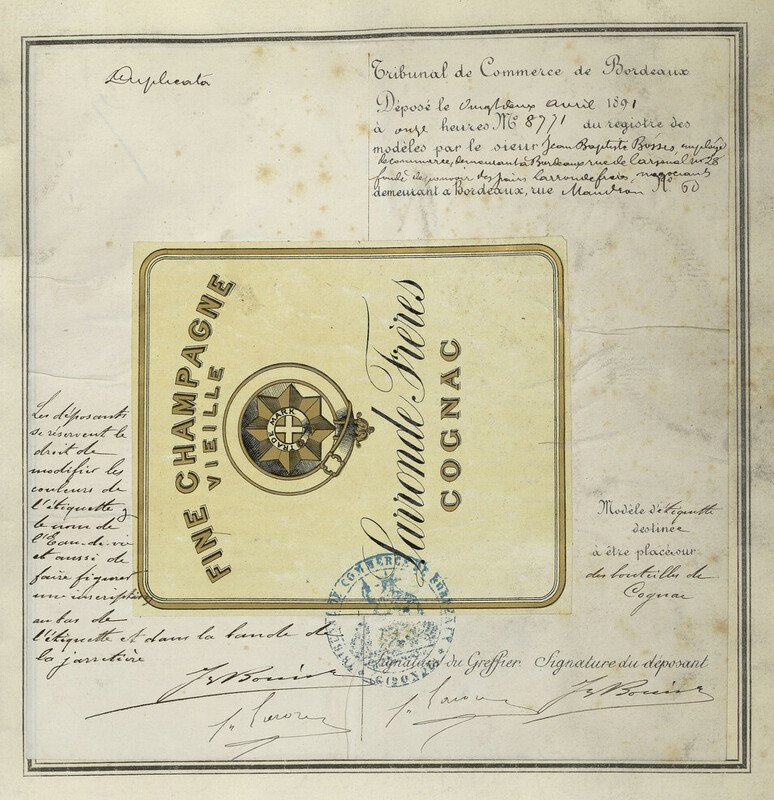 Duplicata
Tribunal de Commerce de Bordeaux
Déposé le vingt deux avril 1891
à onze heures No 8771 du registre des
modèles par le sieur Jean Baptiste employé
de commerce, demeurant à Bordeaux rue de l'arsenal no 28
fondé de pouvoir des Larronde frères, négociants
demeurant à Bordeaux, rue Mandron No 60
FINE CHAMPAGNE
VIEILLE
TRADE MARK
Larronde Frères
COGNAC
Les déposants
se réservent le
droit de
modifier les
couleurs de
l'étiquette,
le nom de
l'Eau-de-vie
et aussi de
faire figurer
une inscription
au bas de
l'étiquette et dans la bande de
la jarretière
Modèle d'étiquette
destinée
à être placée sur
des bouteilles de
Cognac
TRIBUNAL DE COMMERCE DE BORDEAUX
(GIRONDE)
Signature du Greffier Signature du déposant